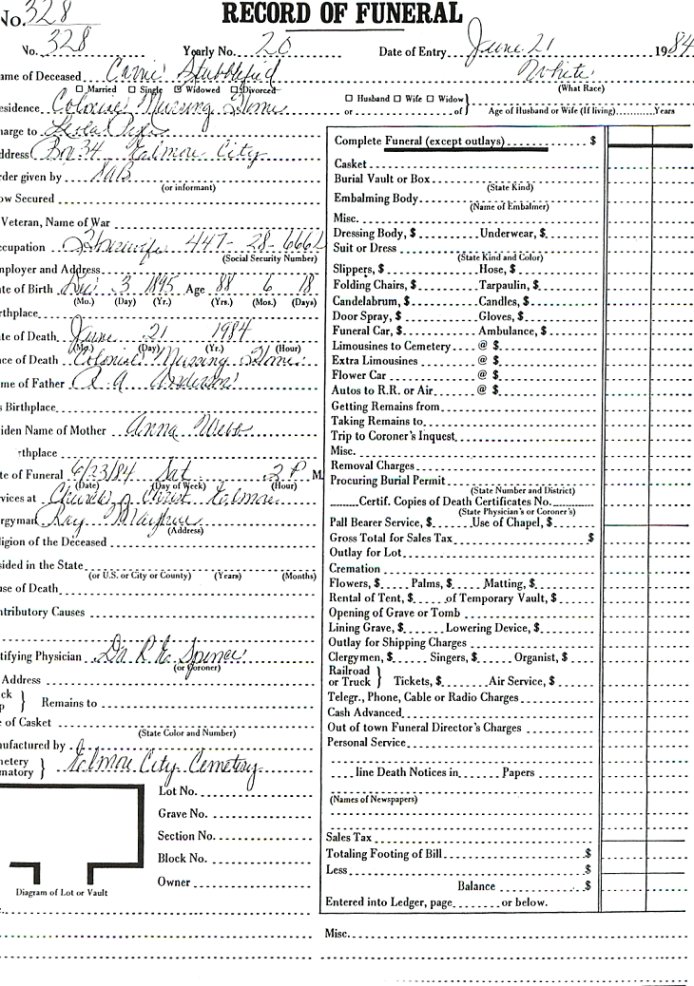 No. 328
RECORD OF FUNERAL
No. 328 Yearly No. 20 Date of Entry June 21 1984
ame of Deceased Carrie Stubblefield White
☐ Married ☐ Single ☑ Widowed ☐ Divorced (What Race)
esidence Colonial Nursing Home ☐ Husband ☐ Wife ☐ Widow
or of Age of Husband or Wife (If living) Years
harge to
ddress Box 34 Elmore City
rder given by
(or informant)
ow Secured
Veteran, Name of War
ccupation Housewife 447-28-6661
(Social Security Number)
mployer and Address
te of Birth Dec. 3 1895 Age 88 6 18
(Mo.) (Day) (Yr.) (Yrs.) (Mos.) (Days)
rthplace
te of Death June 21 1984
(Mo.) (Day) (Yr.) (Hour)
ce of Death Colonial Nursing Home
me of Father R. A. Anderson
s Birthplace
iden Name of Mother Anna Webb
rthplace
te of Funeral 6/23/84 Sat 2 P M
(Date) (Day of Week) (Hour)
vices at Church of Christ Elmore
rgyman Ray
(Address)
ligion of the Deceased
sided in the State
(or U.S. or City or County) (Years) (Months)
use of Death
ntributory Causes
tifying Physician Dr. R E Spence
(or Coroner)
Address
ck
p } Remains to
e of Casket
(State Color and Number)
nufactured by
metery
matory } Elmore City Cemetery
Lot No.
Grave No.
Section No.
Block No.
Owner
Diagram of Lot or Vault
Complete Funeral (except outlays) $
Casket
Burial Vault or Box
(State Kind)
Embalming Body
(Name of Embalmer)
Misc.
Dressing Body, $ Underwear, $
Suit or Dress
(State Kind and Color)
Slippers, $ Hose, $
Folding Chairs, $ Tarpaulin, $
Candelabrum, $ Candles, $
Door Spray, $ Gloves, $
Funeral Car, $ Ambulance, $
Limousines to Cemetery @ $
Extra Limousines @ $
Flower Car @ $
Autos to R.R. or Air @ $
Getting Remains from
Taking Remains to
Trip to Coroner's Inquest
Misc.
Removal Charges
Procuring Burial Permit
(State Number and District)
Certif. Copies of Death Certificates No.
(State Physician's or Coroner's)
Pall Bearer Service, $ Use of Chapel, $
Gross Total for Sales Tax $
Outlay for Lot
Cremation
Flowers, $ Palms, $ Matting, $
Rental of Tent, $ of Temporary Vault, $
Opening of Grave or Tomb
Lining Grave, $ Lowering Device, $
Outlay for Shipping Charges
Clergymen, $ Singers, $ Organist, $
Railroad
or Truck } Tickets, $ Air Service, $
Telegr., Phone, Cable or Radio Charges
Cash Advanced
Out of town Funeral Director's Charges
Personal Service
line Death Notices in Papers
(Names of Newspapers)
Sales Tax
Totaling Footing of Bill $
Less $
Balance $
Entered into Ledger, page or below.
Misc.